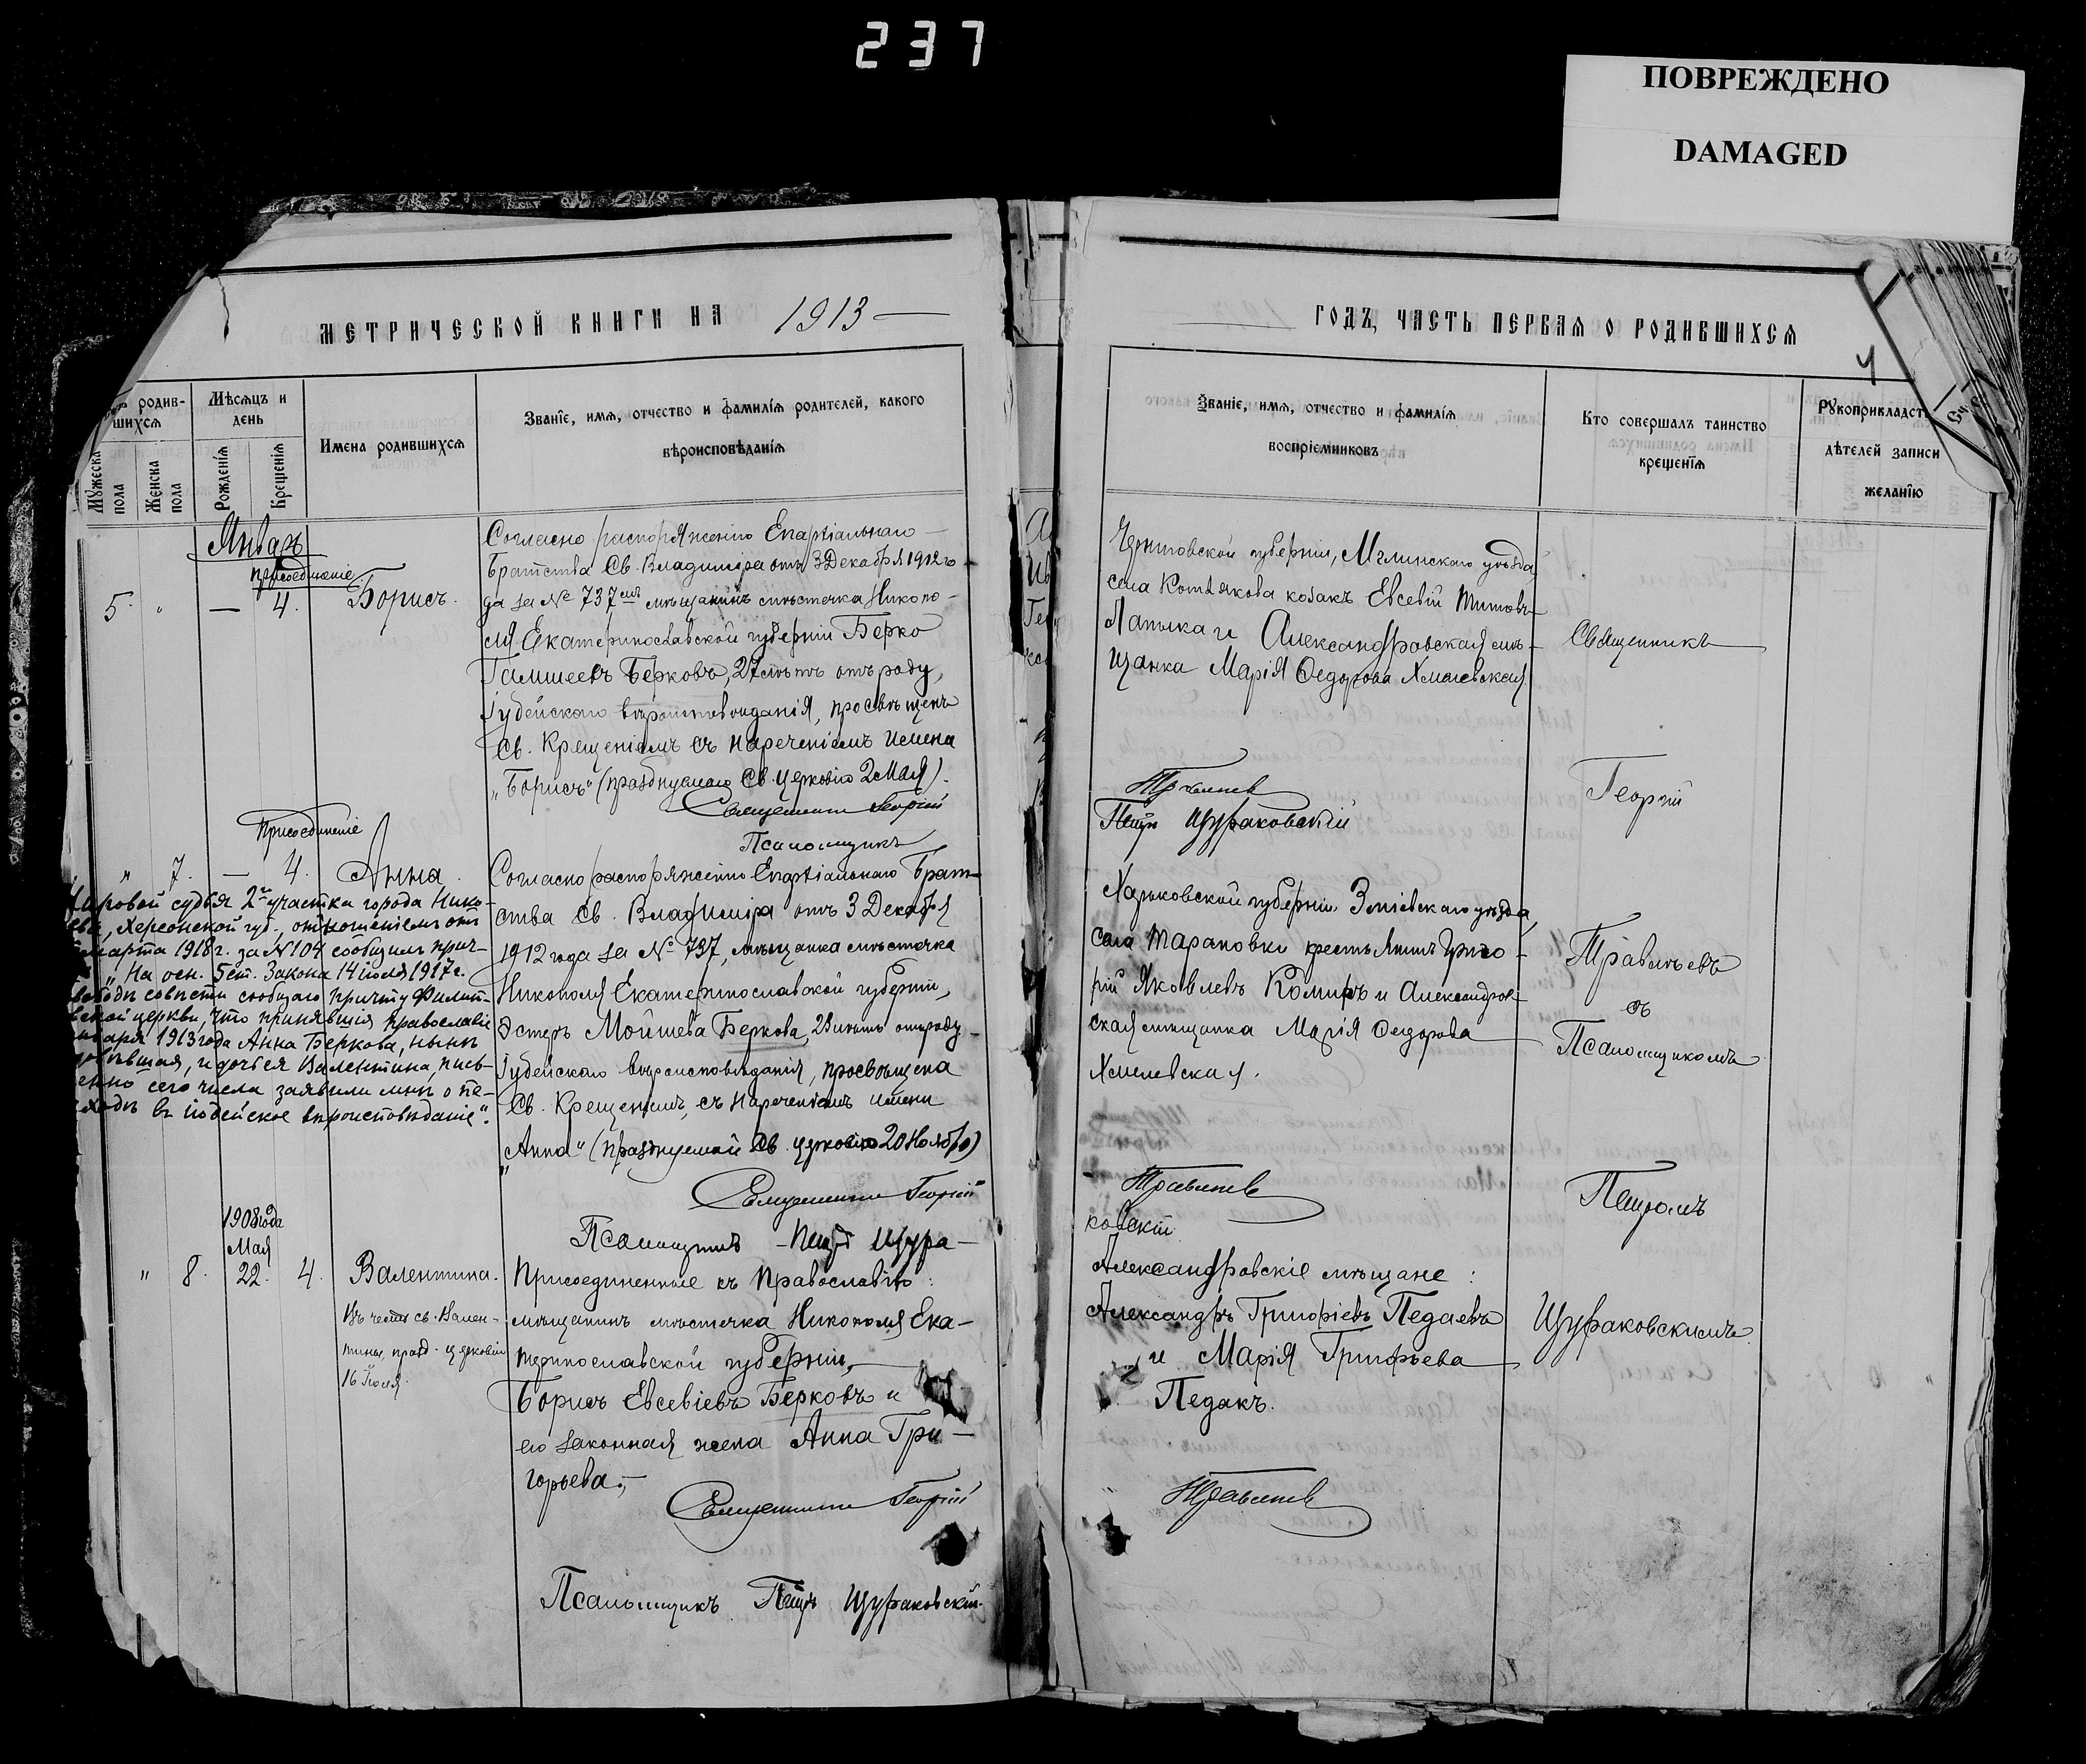 237
ПОВРЕЖДЕНО
DAMAGED
МЕТРИЧЕСКОЙ КНИГИ НА 1913
родив-
шихся
Мужеска пола
Женска пола
Мѣсяцъ и день
Рожденія
Крещенія
Имена родившихся
Званіе, имя, отчество и фамилія родителей, какого
вѣроисповѣданія
Январь
присоединеніе
5. " — 4. Борисъ.
Согласно распоряженію Епархіальнаго
Братства Св. Владиміра отъ 3 Декабря 1912 го-
да за № 737 мѣщанинъ мѣстечка Никопо-
ля Екатеринославской губерніи Берко
Берковъ, 27 лѣтъ отъ роду,
Іудейскаго вѣроисповѣданія, просвѣщенъ
Св. Крещеніемъ съ нареченіемъ имени
"Борисъ" (празднуемаго Св. церковію 2 Мая).
Священникъ Георгій
Псаломщикъ
Присоединеніе
" 7. — 4. Анна.
Согласно распоряженію Епархіальнаго Брат-
ства Св. Владиміра отъ 3 Декабря
1912 года за № 737, мѣщанка мѣстечка
Никополя Екатеринославской губерніи,
Эстеръ Мойшева Беркова, 28 лѣтъ отъ роду
Іудейскаго вѣроисповѣданія, просвѣщена
Св. Крещеніемъ, съ нареченіемъ имени
"Анна" (празднуемой Св. церковію 20 Ноября)
Священникъ Георгій
Псаломщикъ Петръ Щура-
Мировой судья 2го участка города Нико-
Херсонской губ., отношеніемъ отъ
марта 1918 г. за № 104 сообщилъ прич-
"На осн. 5 ст. Закона 14 іюля 1917 г.
свободѣ совѣсти сообщаю причту Филип-
церкви, что принявшія православіе
января 1913 года Анна Беркова, нынѣ
и дочь ея Валентина, пись-
менно сего числа заявили мнѣ о пе-
реходѣ въ іюдейское вѣроисповѣданіе".
1908 года
Мая
" 8. 22. 4. Валентина.
Въ честь св. Вален-
тины, празд. церковію
16 Іюля.
Присоединенные къ Православію:
мѣщанинъ мѣстечка Никополя Ека-
теринославской губерніи,
Борисъ Евсевіевъ Берковъ и
его законная жена Анна Гри-
горьева.
Священникъ Георгій
Псаломщикъ Петръ Щураковскій.
ГОДЪ, ЧАСТЬ ПЕРВАЯ О РОДИВШИХСЯ
4
Званіе, имя, отчество и фамилія
воспріемниковъ
Кто совершалъ таинство
крещенія
Рукоприкладст
дѣтелей записи
желанію
Черниговской губерніи, Мглинскаго уѣзда
села Котлякова козакъ Евсевій Титовъ
Лапыка и Александровская мѣ-
щанка Марія Федорова Хмелевская
Травлѣевъ
Петръ Щураковскій
Харьковской губерніи Зміевскаго уѣзда,
села Тарановки крестьянинъ Григо-
рій Яковлевъ Комиръ и Александров-
ская мѣщанка Марія Федорова
Хмелевская.
Травлѣевъ
ковскій
Александровскіе мѣщане:
Александръ Григоріевъ Педаевъ
и Марія Григорьева
Педакъ.
Травлѣевъ
Священникъ
Георгій
Травлѣевъ
съ
Псаломщикомъ
Петромъ
Щураковскимъ